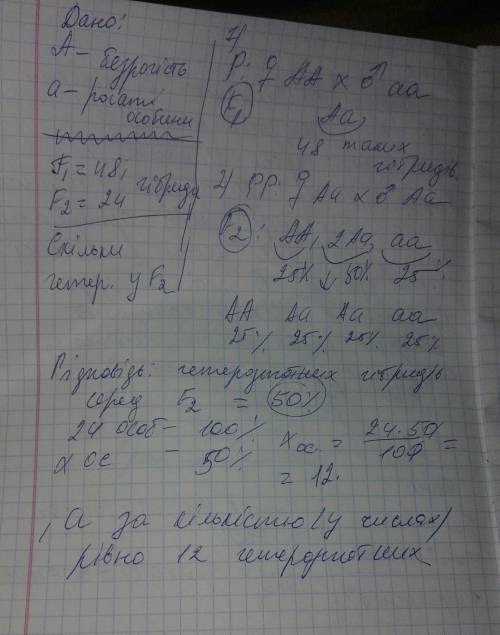 Дано:
А – безрогість
а – рогаті
особини
F₁ = 48,
F₂ = 24 гібриди
Скільки
гетер. у F₂
1)
P: ♀ АА х ♂ аа
F₁
Аа
48 таких
гібридів
2) PP: ♀ Аа х ♂ Аа
F₂: АА, 2Аа, аа
25% ↓ 50% 25%
АА Аа Аа аа
25% 25% 25% 25%
Відповідь: гетерозиготних гібридів
серед F₂ = 50%
24 особ – 100%
х ос – 50%
х ос. = 24·50/100 =
= 12.
, а за кількістю (у числах)
рівно 12 гетерозиготних